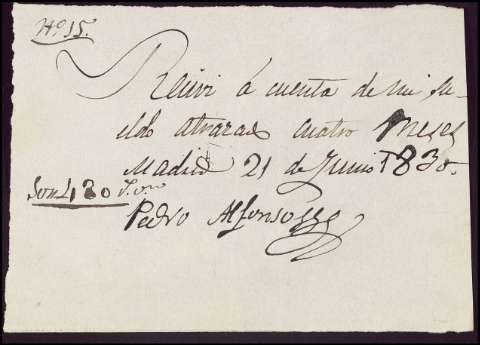 Nº 15.
Recivi á cuenta de mi su-
eldo atrazado cuatro Meses
Madrid 21 de Junio 1830.
Son 480
Pedro Alfonso